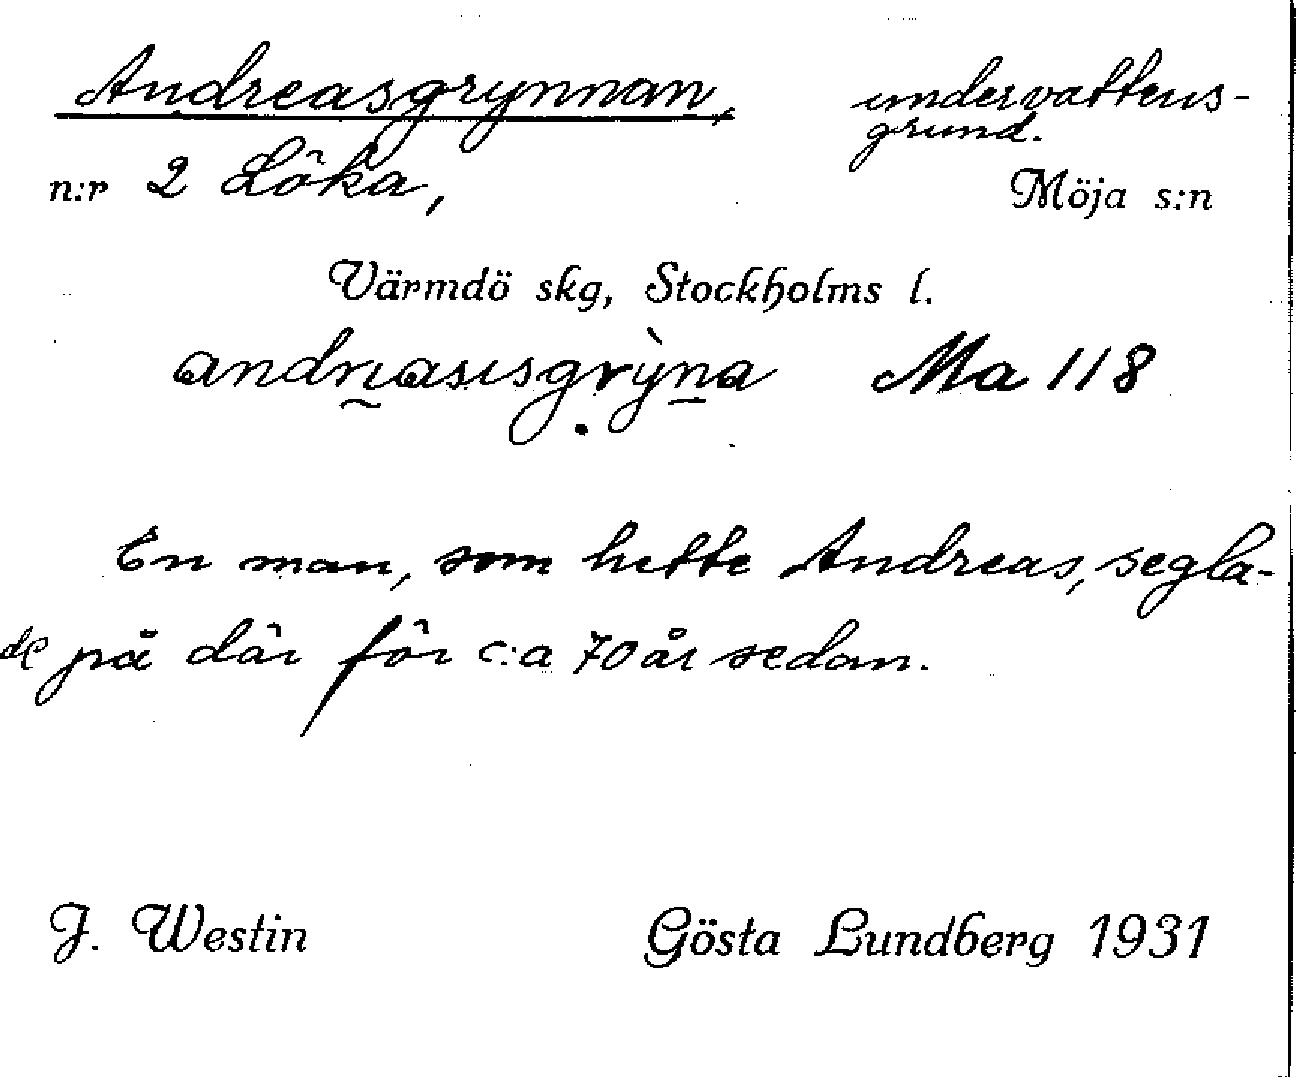 Andreasgrynnan, undervattens-
grund.
n:r 2 Löka, Möja s:n
Värmdö skg, Stockholms l.
Ma 118
En man, som hette Andreas, segla-
de på där för c:a 70 år sedan.
J. Westin Gösta Lundberg 1931